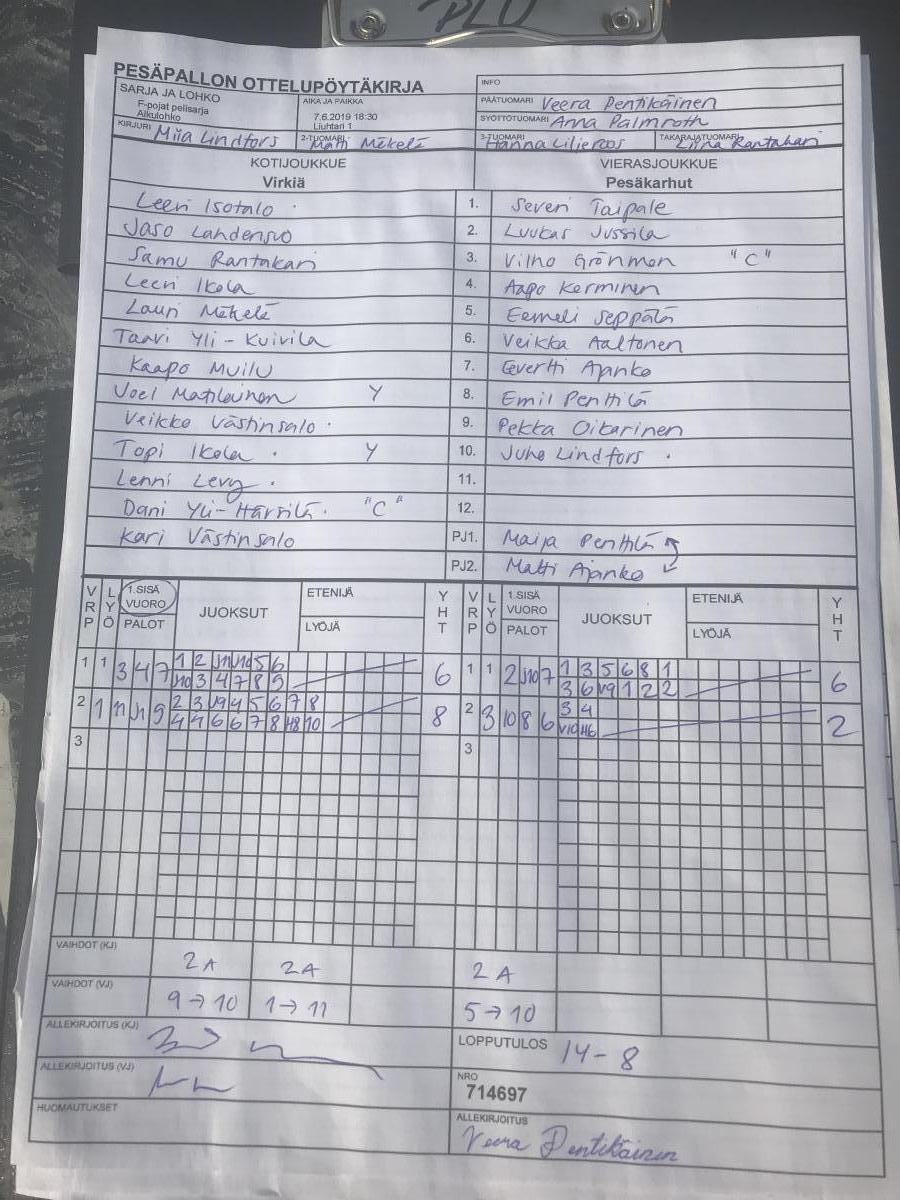 PLU
PESÄPALLON OTTELUPÖYTÄKIRJA
INFO
SARJA JA LOHKO
F-pojat pelisarja
Alkulohko
AIKA JA PAIKKA
7.6.2019 18:30
Liuhtari 1
PÄÄTUOMARI Veera Pentikäinen
SYÖTTÖTUOMARI Anna Palmroth
KIRJURI Miia Lindfors
2-TUOMARI Matti Mäkelä
3-TUOMARI Hanna Liljeroos
TAKARAJATUOMARI Liina Rantakari
KOTIJOUKKUE
Virkiä
VIERASJOUKKUE
Pesäkarhut
Leevi Isotalo 1. Severi Taipale
Jaso Lahdensuo 2. Luukas Jussila
Samu Rantakari 3. Vilho Grönman "C"
Leevi Ikola 4. Aapo Kerminen
Lauri Mäkelä 5. Eemeli Seppälä
Taavi Yli-Kuivila 6. Veikka Aaltonen
Kaapo Muilu 7. Eevertti Ajanko
Joel Matilainen Y 8. Emil Penttilä
Veikko Västinsalo 9. Pekka Oikarinen
Topi Ikola Y 10. Juho Lindfors
Lenni Levy 11.
Dani Yli-Härsilä "C" 12.
Kari Västinsalo PJ1. Maija Penttilä
PJ2. Matti Ajanko
VRP LYÖ 1.SISÄ VUORO PALOT JUOKSUT ETENIJÄ LYÖJÄ YHT VRP LYÖ 1.SISÄ VUORO PALOT JUOKSUT ETENIJÄ LYÖJÄ YHT
1 1 3 4 7 1 2 5 6
3 4 7 8 9 6
1 1 2 7 1 3 5 6 8 1
3 6 1 2 2 6
2 1 9 2 3 4 5 6 7 8
4 4 6 6 7 8 10 8
2 3 10 8 6 3 4
2
3 3
VAIHDOT (KJ) 2A 2A 2A
VAIHDOT (VJ) 9→10 1→11 5→10
ALLEKIRJOITUS (KJ)
LOPPUTULOS 14-8
ALLEKIRJOITUS (VJ)
NRO
714697
HUOMAUTUKSET
ALLEKIRJOITUS
Veera Pentikäinen